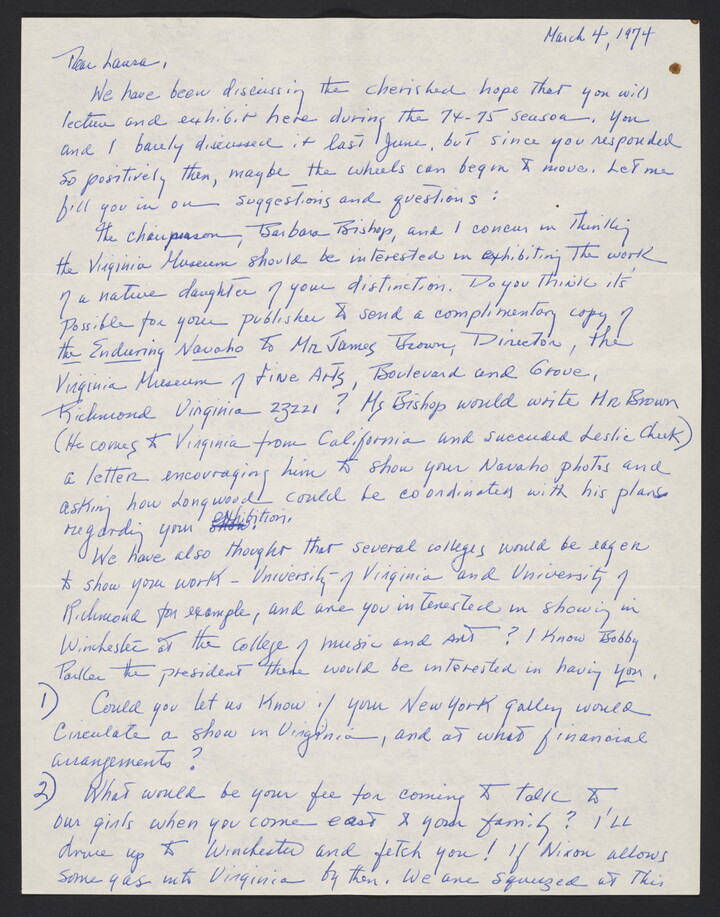 March 4, 1974
Dear Laura,
We have been discussing the cherished hope that you will
lecture and exhibit here during the 74-75 season. You
and I barely discussed it last June, but since you responded
so positively then, maybe the wheels can begin to move. Let me
fill you in on our suggestions and questions:
The chairperson, Barbara Bishop, and I concur in thinking
the Virginia Museum should be interested in exhibiting the work
of a native daughter of your distinction. Do you think it's
possible for your publisher to send a complimentary copy of
the Enduring Navaho to Mr James Brown, Director, the
Virginia Museum of Fine Arts, Boulevard and Grove,
Richmond Virginia 23221? Ms Bishop would write Mr Brown
(He comes to Virginia from California and succeeded Leslie Cheek)
a letter encouraging him to show your Navaho photos and
asking how Longwood could be coordinated with his plans
regarding your exhibition.
We have also thought that several colleges would be eager
to show your work - University of Virginia and University of
Richmond for example, and are you interested in showing in
Winchester at the college of music and art? I know Bobby
Parker the president there would be interested in having you.
1) Could you let us know if your New York gallery would
circulate a show in Virginia, and at what financial
arrangements?
2) What would be your fee for coming to talk to
our girls when you come east to your family? I'll
drive up to Winchester and fetch you! If Nixon allows
some gas into Virginia by then. We are squeezed at this